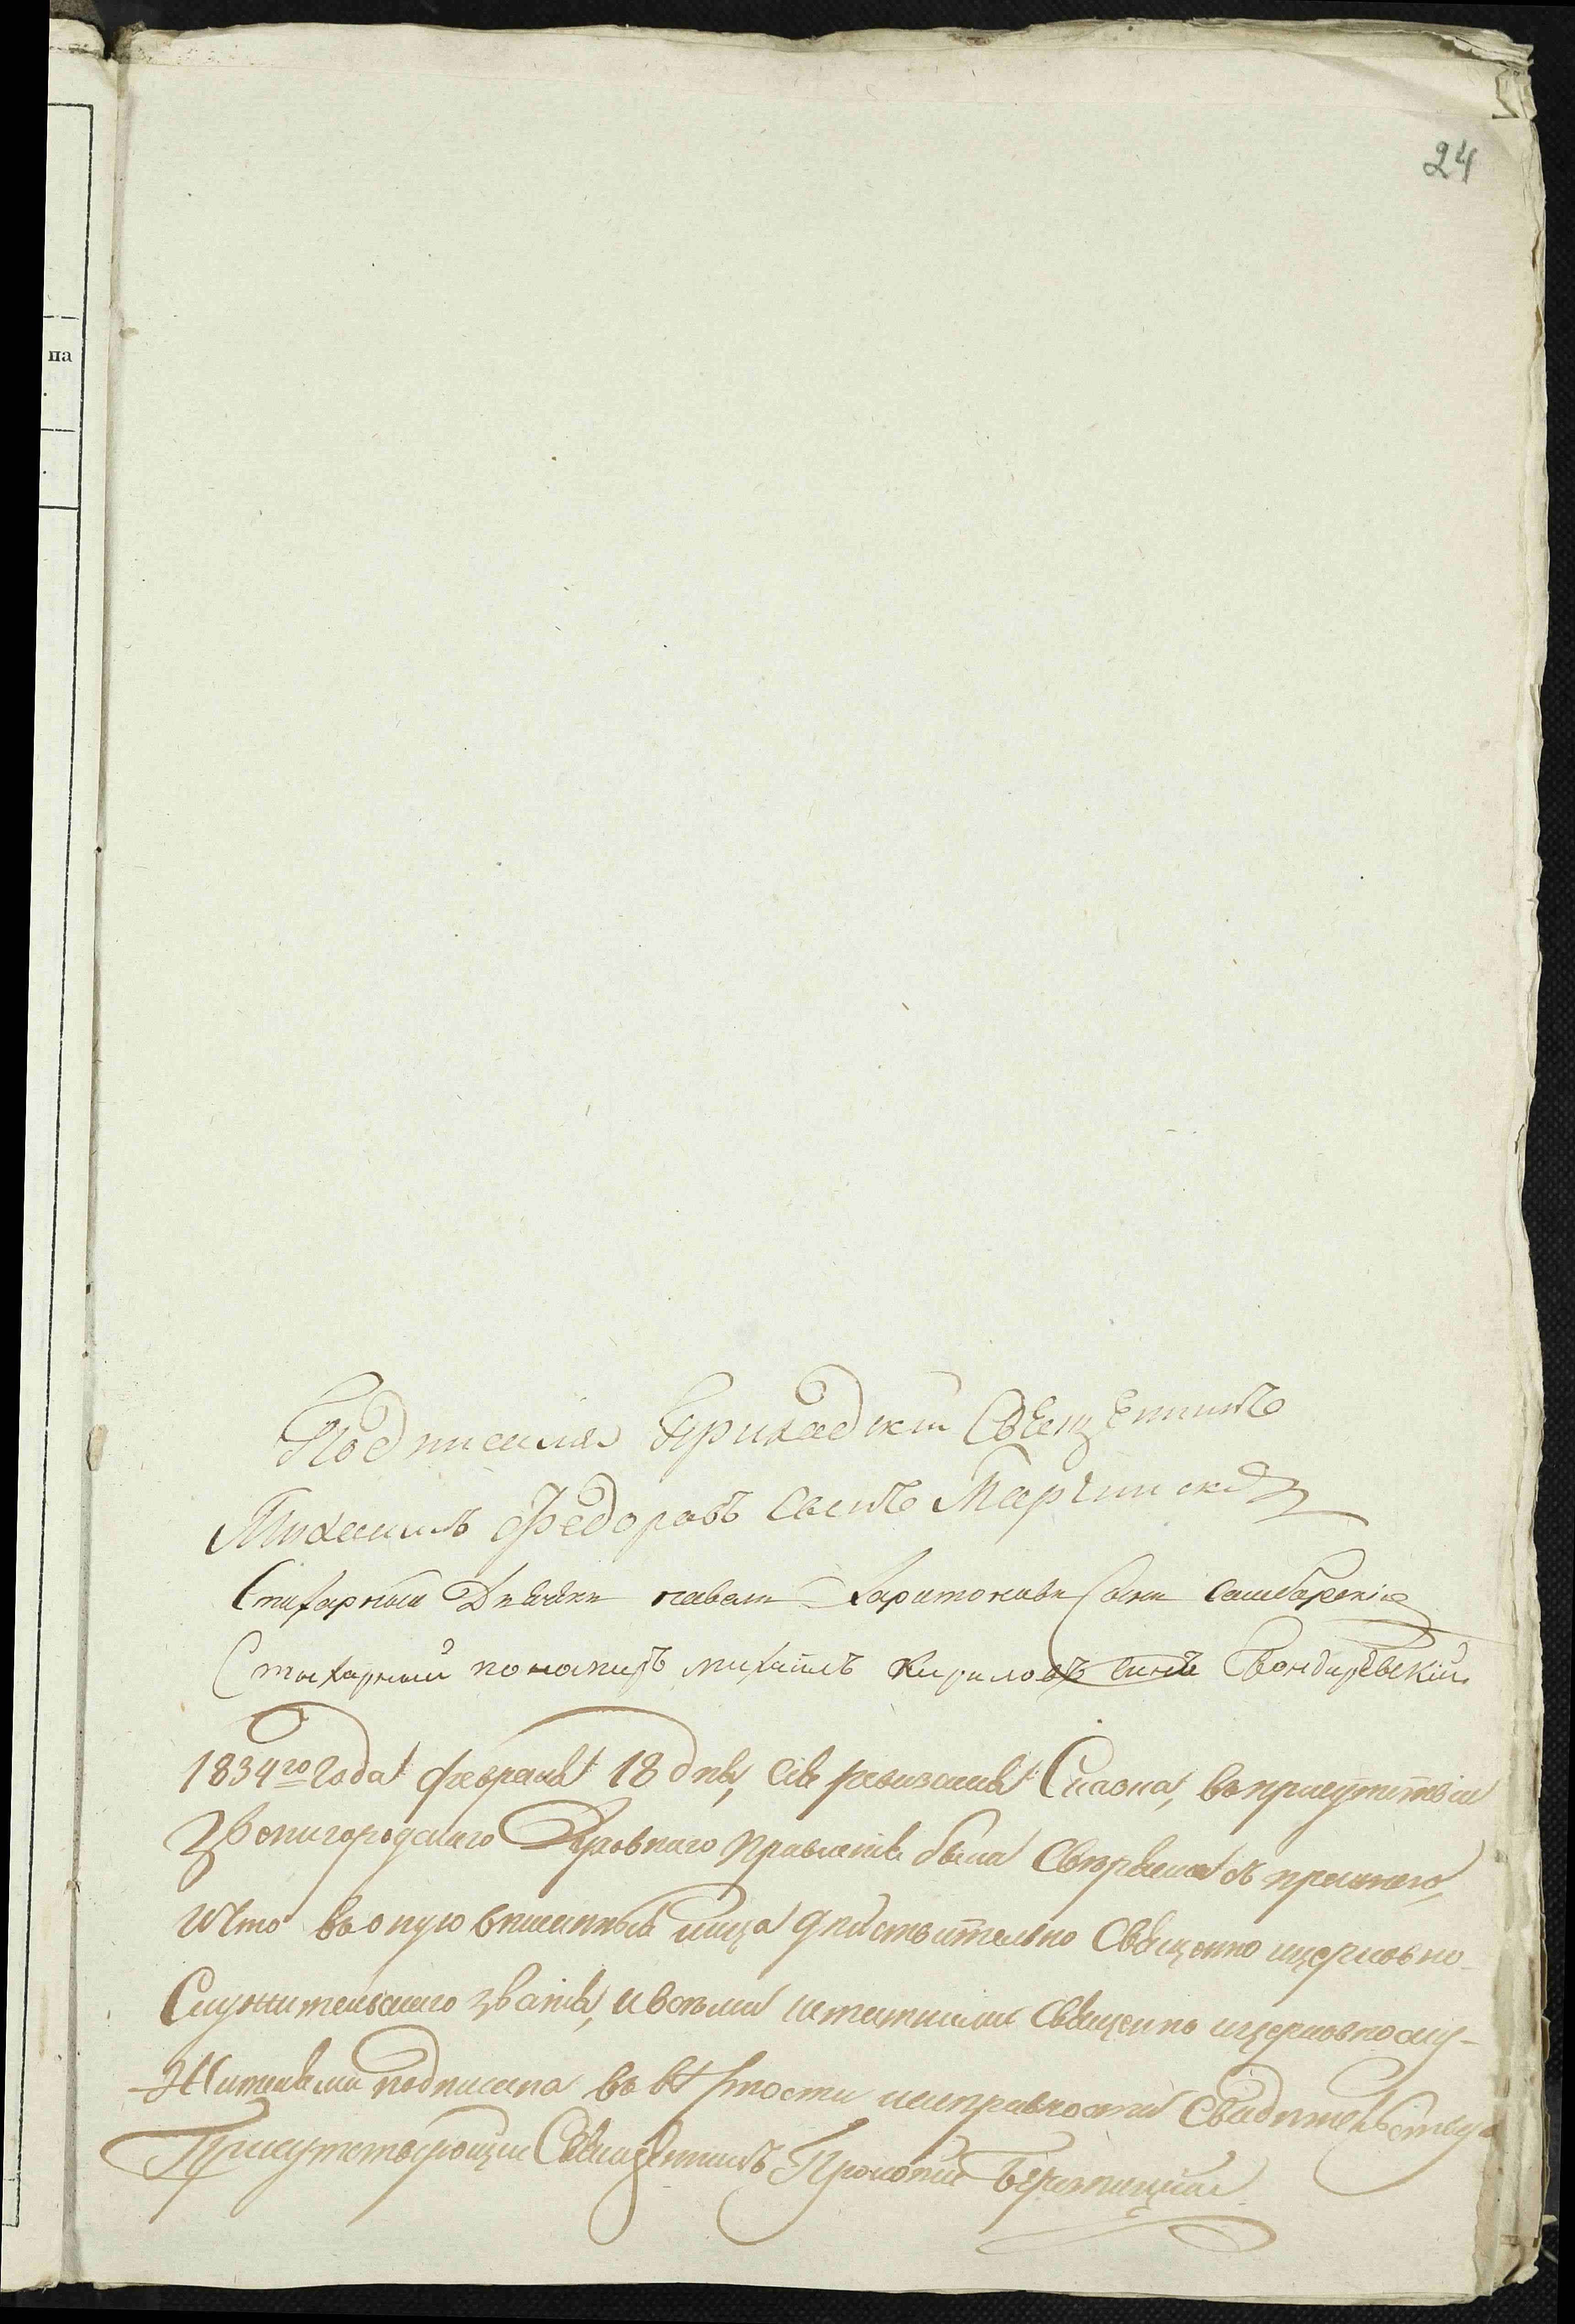 24
на
Подписался Приходскій Священникъ
Михаилъ Федоровъ Сынъ Марчинскій
Стихарный Дьячекъ павелъ Харитоновъ Сынъ
Стихарный понамарь михаилъ Кириловъ синъ Бондаревскій
1834го Года февраля 18 дня, сія ревизская Сказка, въ присутствіи
Звенигородскаго Духовнаго Правленія была Свѣряема съ прежнею,
и что въ оную вписанныя лица дѣйствительно Священно ицерковно-
Служительскаго званія, и всѣми штатними Священно ицерковнослу-
жителями подписана въ вѣрности иисправности Свидѣтельствую
Присутствующій Священникъ Прокопій